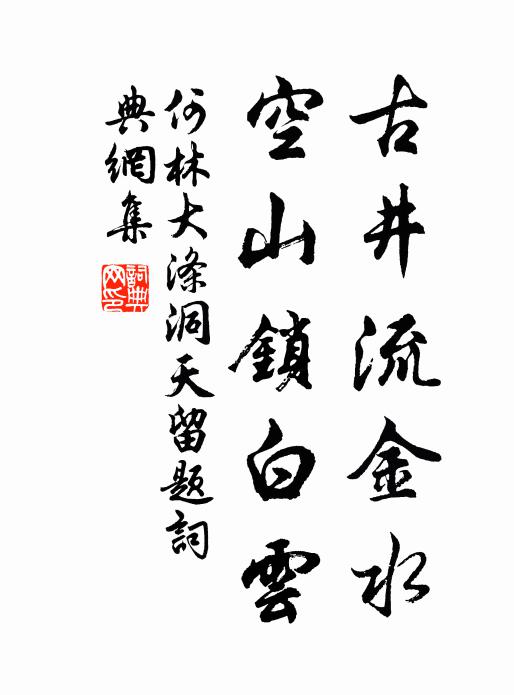 古井流金水
空山鎖白雲
何林大滌洞天留題詞
典網集
詞典网印